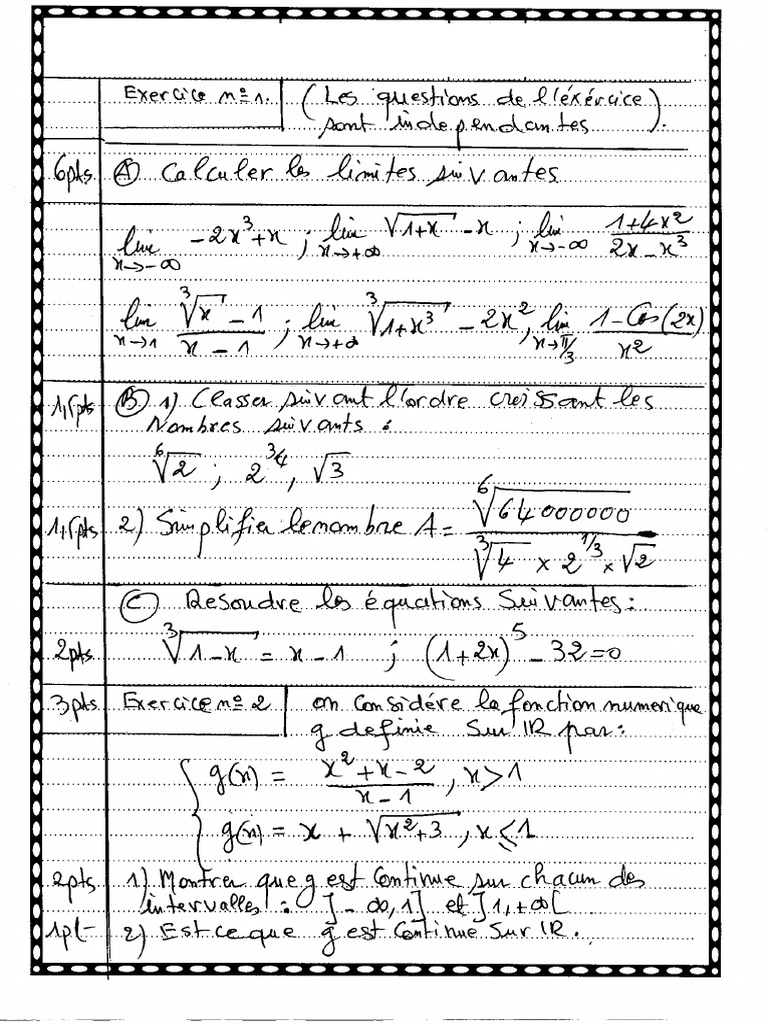 Exercice n° 1. (Les questions de l'éxércice)
sont independantes ).
6pts (A) Calculer les limites suivantes
lim x→-∞ -2x³+x ; lim x→+∞ √(1+x) - x ; lim x→-∞ (1+4x²)/(2x-x³)
lim x→1 (∛x - 1)/(x - 1) ; lim x→+∞ ∛(1+x³) - 2x² , lim x→π/3 (1-Cos(2x))/x²
1,5pts (B) 1) Classer suivant l'ordre croissant les
Nombres suivants :
⁶√2 ; 2^(3/4) , √3
1,5pts 2) Simplifier le nombre A = ⁶√64000000 / (∛4 × 2^(1/3) × √2)
(C) Resoudre les équations Suivantes :
2pts ∛(1-x) = x - 1 ; (1+2x)⁵ - 32 = 0
3pts Exercice n° 2 on Considére la fonction numerique
g definie Sur IR par :
g(x) = (x²+x-2)/(x-1) , x>1
g(x) = x + √(x²+3) , x≤1
2pts 1) Montrer que g est Continue sur chacun des
intervalles : ]-∞,1] et ]1,+∞[
1pt 2) Est ce que g est Continue Sur IR.